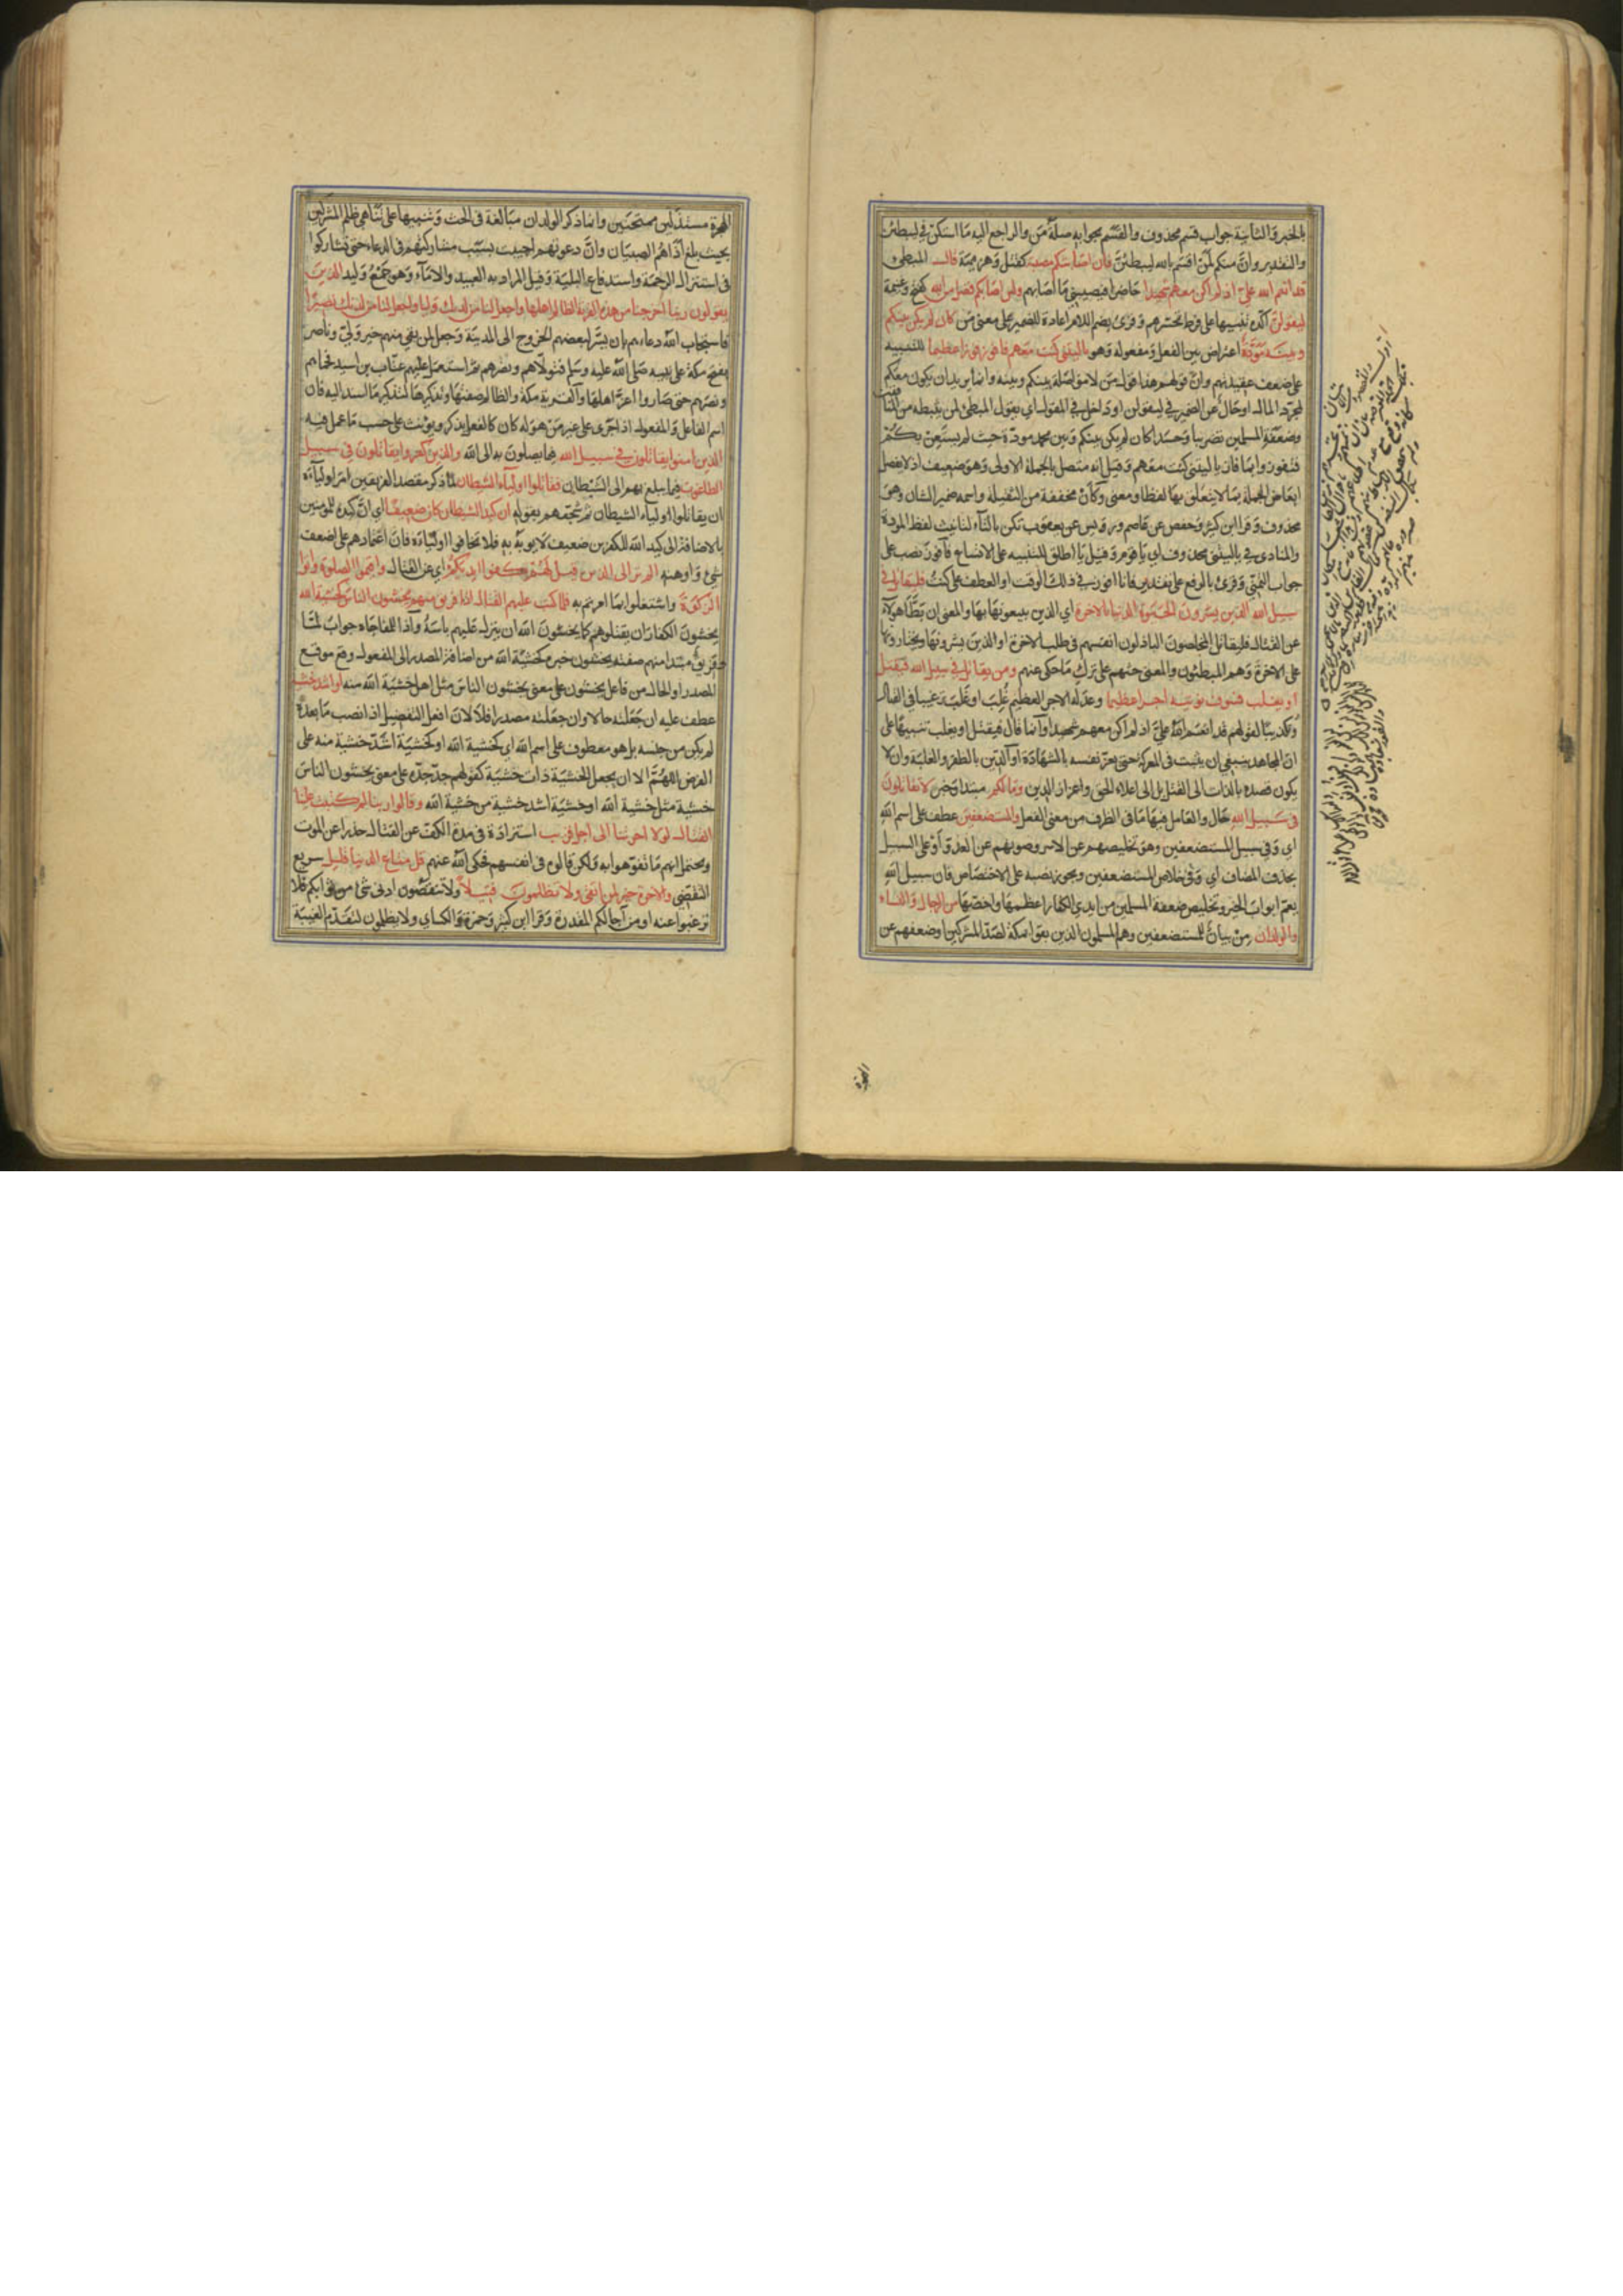 بالخبر والثانية جواب قسم محذوف والقسم بجوابه صلة من والراجع اليه ما استكن في ليبطئن
والتقدير وان منكم لمن اقسم بالله ليبطئن فان اصابتكم مصيبة كقتل وهزيمة قال المبطئ
قد انعم الله علي اذ لم اكن معهم شهيدا حاضرا فيصيبني ما اصابهم ولئن اصابكم فضل من الله كفتح وغنيمة
ليقولن اكده تنبيها على فرط تحسرهم وقرئ بضم اللام اعادة للضمير على معنى من كان لم يكن بينكم
وبينه مودة اعتراض بين الفعل ومفعوله وهو يا ليتني كنت معهم فافوز فوزا عظيما للتنبيه
على ضعف عقيدتهم وان قولهم هذا قول من لا مواصلة بينكم وبينه وانما يريد ان يكون معكم
لمجرد المال او حال عن الضمير في ليقولن او داخل في المقول اي يقول المبطئ لمن يثبطه من المنافقين
وضعفة المسلمين تضريبا وحسدا كان لم يكن بينكم وبين محمد مودة حيث لم يستعن بكم
فتفوزوا بما فاز يا ليتني كنت معهم وقيل انه متصل بالجملة الاولى وهو ضعيف اذ لا يفصل
ابعاض الجملة بما لا يتعلق بها لفظا ومعنى وكان مخففة من الثقيلة واسمه ضمير الشان وهو
محذوف وقرا ابن كثير وحفص عن عاصم ورويس عن يعقوب تكن بالتاء لتانيث لفظ المودة
والمنادى في يا ليتني محذوف اي يا قوم وقيل يا اطلق للتنبيه على الاتساع فافوز نصب على
جواب التمني وقرئ بالرفع على تقدير فانا افوز في ذلك الوقت او العطف على كنت فليقاتل في
سبيل الله الذين يشرون الحيوة الدنيا بالاخرة اي الذين يبيعونها بها والمعنى ان بطا هولاء
عن القتال فليقاتل المخلصون الباذلون انفسهم في طلب الاخرة او الذين يشرونها ويختارونها
على الاخرة وهم المبطئون والمعنى حثهم على ترك ما حكى عنهم ومن يقاتل في سبيل الله فيقتل
او يغلب فسوف نوتيه اجرا عظيما وعد له الاجر العظيم غلب او غلب ترغيبا في القتال
وتكذيبا لقولهم قد انعم الله علي اذ لم اكن معهم شهيدا وانما قال فيقتل او يغلب تنبيها على
ان المجاهد ينبغي ان يثبت في المعركة حتى يعز نفسه بالشهادة او الدين بالظفر والغلبة وان لا
يكون قصده بالذات الى القتل بل الى اعلاء الحق واعزاز الدين وما لكم مبتدا وخبر لا تقاتلون
في سبيل الله حال والعامل فيها ما في الظرف من معنى الفعل والمستضعفين عطف على اسم الله
اي وفي سبيل المستضعفين وهو تخليصهم عن الاسر وصونهم عن العدو او على السبيل
بحذف المضاف اي وفي خلاص المستضعفين ويجوز نصبه على الاختصاص فان سبيل الله
يعم ابواب الخير وتخليص ضعفة المسلمين من ايدي الكفار اعظمها واخصها من الرجال والنساء
والولدان من بيان للمستضعفين وهم المسلمون الذين بقوا بمكة لصد المشركين او ضعفهم عن
الهجرة
الهجرة مستذلين ممتحنين وانما ذكر الولدان مبالغة في الحث وتنبيها على تناهي ظلم المشركين
بحيث بلغ اذاهم الصبيان وان دعوتهم اجيبت بسبب مشاركتهم في الدعاء حتى تشاركوا
في استنزال الرحمة واستدفاع البلية وقيل المراد به العبيد والاماء وهو جمع وليد الذين
يقولون ربنا اخرجنا من هذه القرية الظالم اهلها واجعل لنا من لدنك وليا واجعل لنا من لدنك نصيرا
فاستجاب الله دعاءهم بان يسر لبعضهم الخروج الى المدينة وجعل لمن بقي منهم خير ولي وناصر
بفتح مكة على نبيه صلى الله عليه وسلم فتولاهم ونصرهم ثم استعمل عليهم عتاب بن اسيد فحماهم
ونصرهم حتى صاروا اعزاء اهلها والقرية مكة والظالم صفتها وتذكيره لتذكير ما اسند اليه فان
اسم الفاعل والمفعول اذا جرى على غير من هو له كان كالفعل يذكر ويونث على حسب ما عمل فيه
الذين امنوا يقاتلون في سبيل الله فيما يصلون به الى الله والذين كفروا يقاتلون في سبيل
الطاغوت فيما يبلغ بهم الى الشيطان فقاتلوا اولياء الشيطان لما ذكر مقصد الفريقين امر اولياءه
ان يقاتلوا اولياء الشيطان ثم شجعهم بقوله ان كيد الشيطان كان ضعيفا اي ان كيده للمومنين
بالاضافة الى كيد الله للكفرين ضعيف لا يوبه به فلا تخافوا اولياءه فان اعتمادهم على اضعف
شيء واوهنه الم تر الى الذين قيل لهم كفوا ايديكم اي عن القتال واقيموا الصلوة واتوا
الزكوة واشتغلوا بما امرتم به فلما كتب عليهم القتال اذا فريق منهم يخشون الناس كخشية الله
يخشون الكفار ان يقتلوهم كما يخشون الله ان ينزل عليهم باسه واذا للمفاجاة جواب لما
وفريق مبتدا منهم صفته يخشون خبره كخشية الله من اضافة المصدر الى المفعول وقع موقع
المصدر او الحال من فاعل يخشون على معنى يخشون الناس مثل اهل خشية الله منه او اشد خشية
عطف عليه ان جعلته حالا وان جعلته مصدرا فلا لان افعل التفضيل اذا نصب ما بعده
لم يكن من جنسه بل هو معطوف على اسم الله اي كخشية الله او كخشية اشد خشية منه على
الفرض اللهم الا ان يجعل الخشية ذات خشية كقولهم جد جده على معنى يخشون الناس
خشية مثل خشية الله او خشية اشد خشية من خشية الله وقالوا ربنا لم كتبت علينا
القتال لولا اخرتنا الى اجل قريب استزادة في مدة الكف عن القتال حذرا عن الموت
ويحتمل انهم ما تفوهوا به ولكن قالوه في انفسهم فحكى الله عنهم قل متاع الدنيا قليل سريع
التقضي والاخرة خير لمن اتقى ولا تظلمون فتيلا ولا تنقصون ادنى شيء من ثوابكم فلا
ترغبوا عنه او من اجالكم المقدرة وقرا ابن كثير وحمزة والكسائي ولا يظلمون لتقدم الغيبة